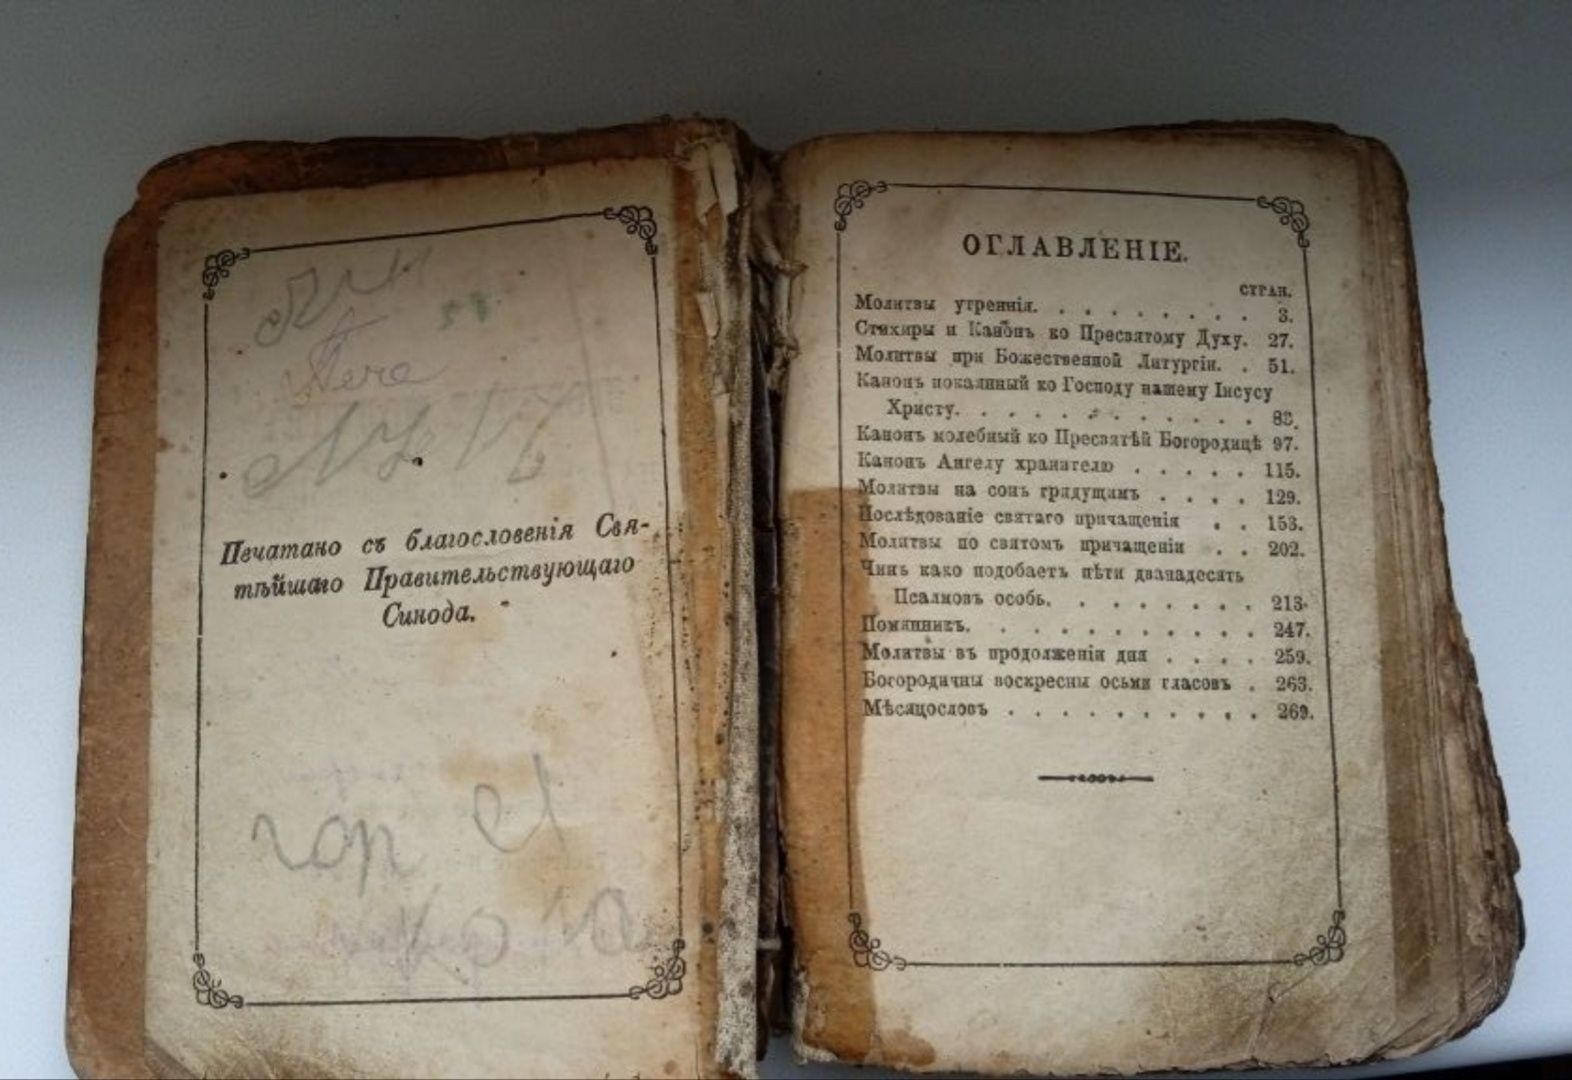 Печатано съ благословенія Свя-
тѣйшаго Правительствующаго
Синода.
ОГЛАВЛЕНІЕ.
СТРАН.
Молитвы утреннія. . . . . . . . . 3.
Стихиры и Канонъ ко Пресвятому Духу. 27.
Молитвы при Божественной Литургіи. . 51.
Канонъ покаянный ко Господу нашему Іисусу
Христу. . . . . . . . . . . . 83.
Канонъ молебный ко Пресвятѣй Богородицѣ 97.
Канонъ Ангелу хранителю . . . . . 115.
Молитвы на сонъ грядущимъ . . . . 129.
Послѣдованіе святаго причащенія . . 153.
Молитвы по святомъ причащеніи . . 202.
Чинъ како подобаетъ пѣти дванадесять
Псалмовъ особь. . . . . . . . 213.
Помянникъ. . . . . . . . . . . 247.
Молитвы въ продолженіи дня . . . . 259.
Богородичны воскресны осьми гласовъ . 263.
Мѣсяцословъ . . . . . . . . . . 269.